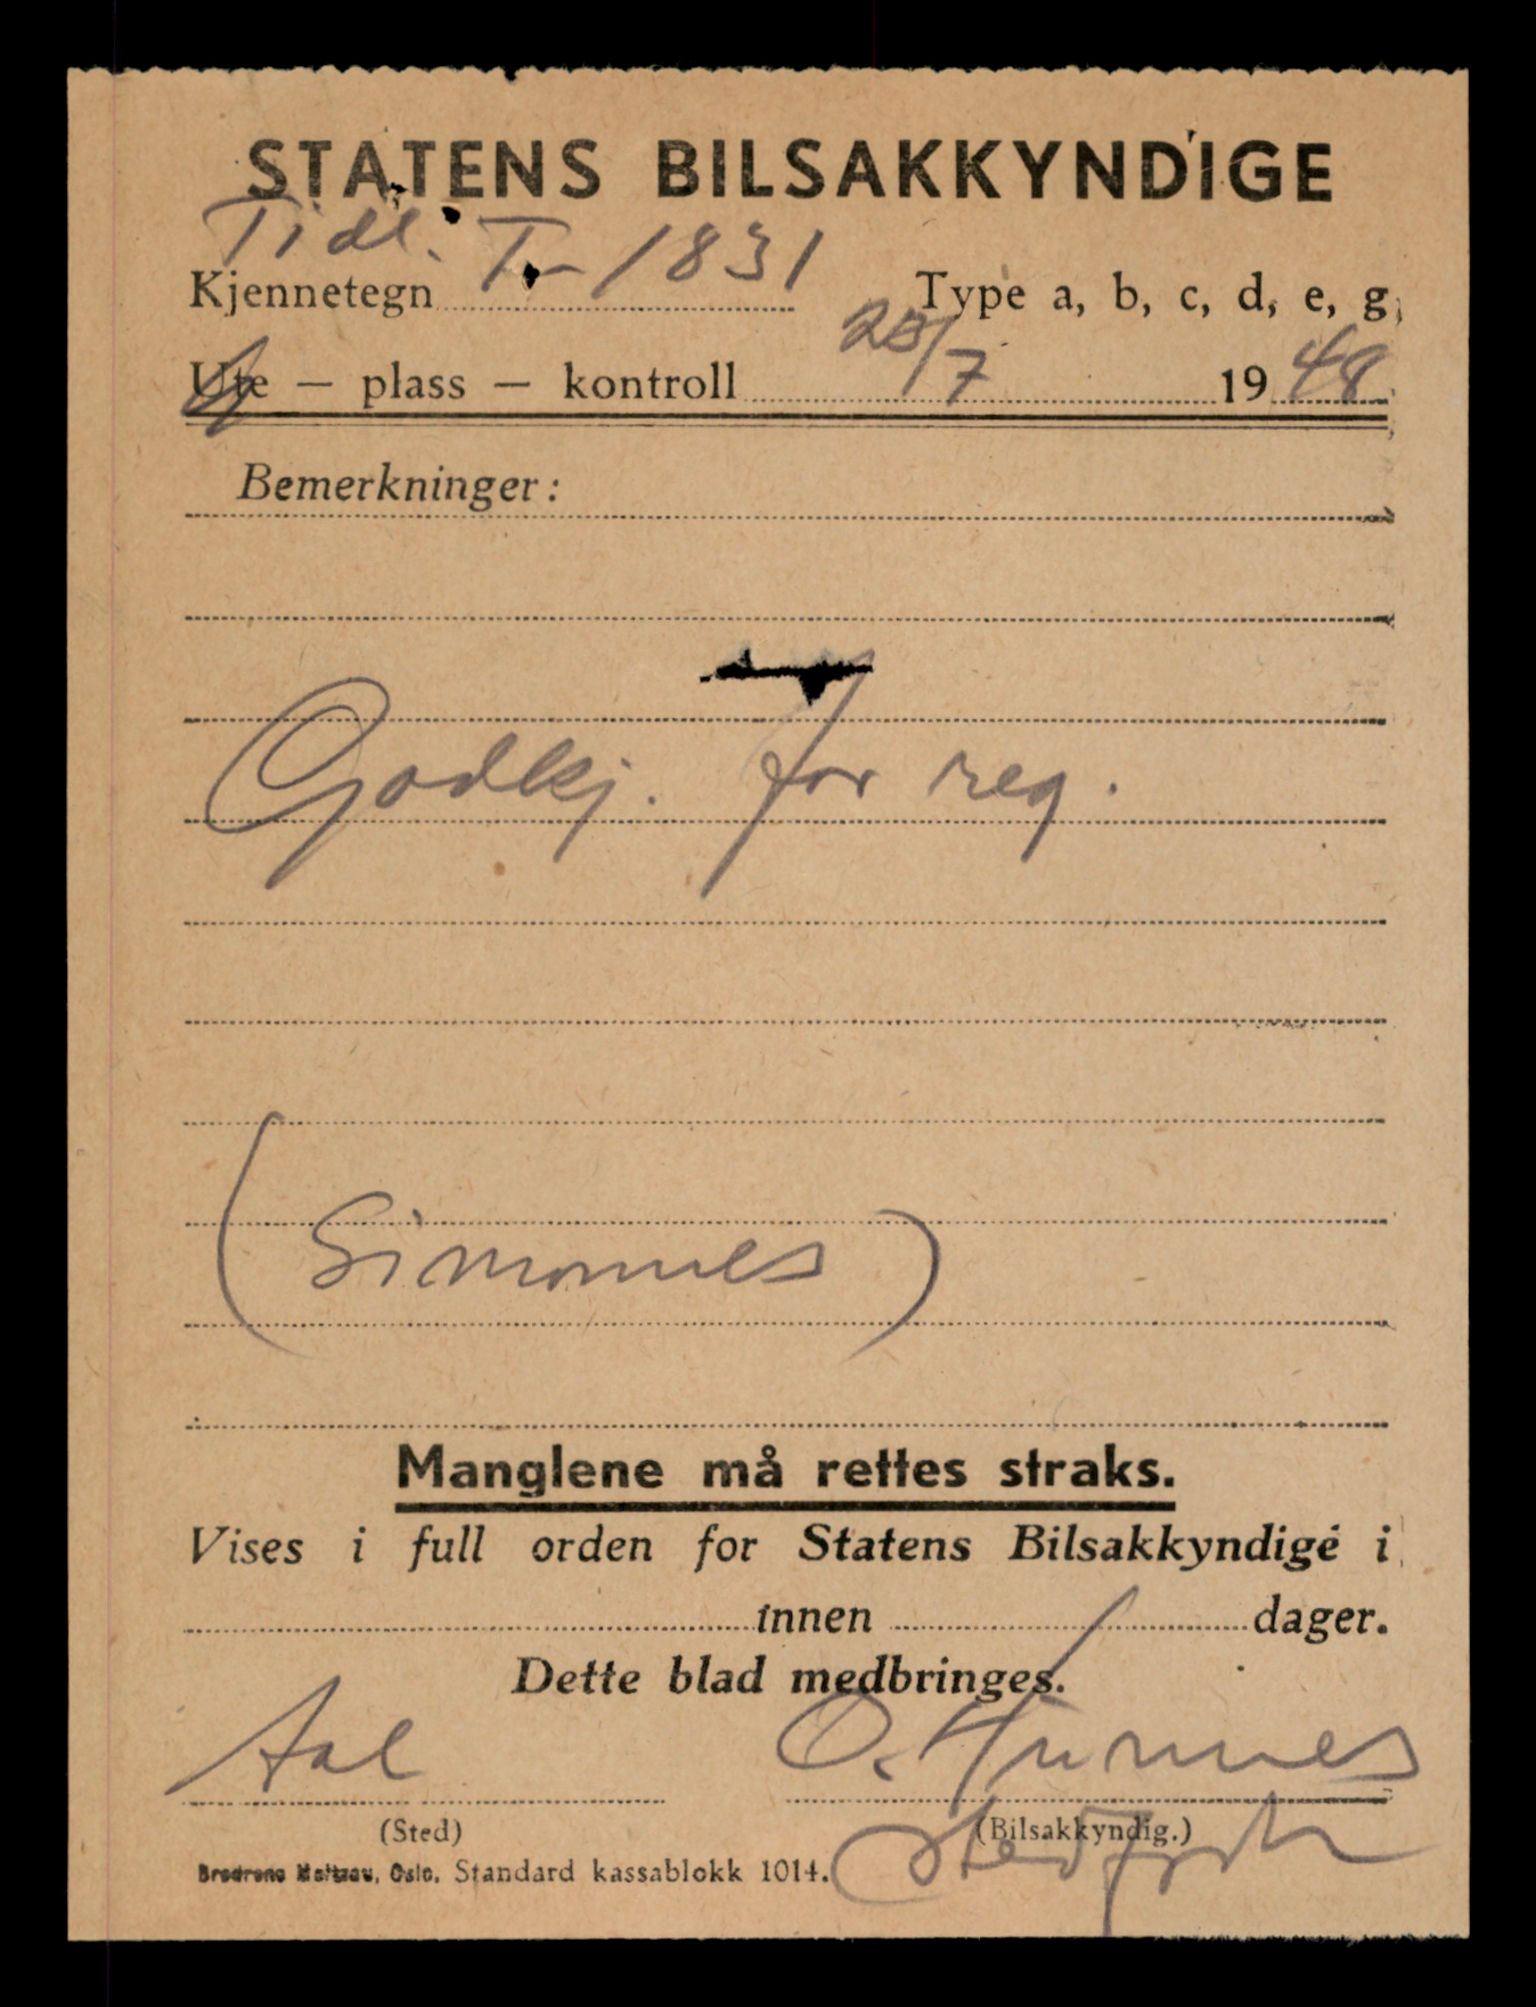 STATENS BILSAKKYNDIGE
Tidl. T-1831
Kjennetegn Type a, b, c, d, e, g,
Ute — plass — kontroll 20/7 1948
Bemerkninger:
Godkj. for reg.
(Simonnes)
Manglene må rettes straks.
Vises i full orden for Statens Bilsakkyndige i
innen dager.
Dette blad medbringes.
Aal O.
(Sted) (Bilsakkyndig.)
Brødrene Maltzau, Oslo, Standard kassablokk 1014.